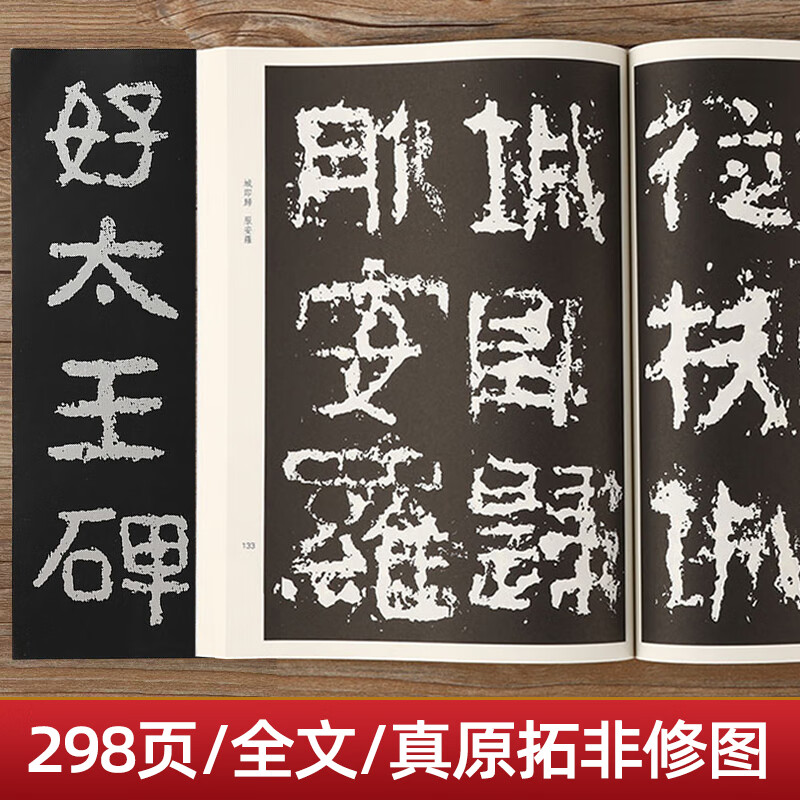 好太王碑
城即歸 服安羅
133
從拔城
城即歸
服安羅
298页/全文/真原拓非修图